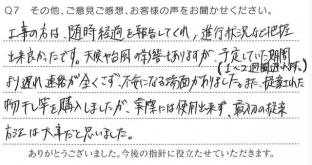 Q7 その他、ご意見ご感想、お客様の声をお聞かせください。
工事の方は、随時経過を報告してくれ、進行状況など把握
出来良かったです。天候や台風の影響もありますが、予定していた期間
(1〜2週間遅れ等。)
より遅れ連絡が全くこず、不安になる場面がありました。また、提案された
物干し等を購入しましたが、実際には使用出来ず、最初の提案
方法は大事だと思いました。
ありがとうございました。今後の指針に役立たせていただきます。